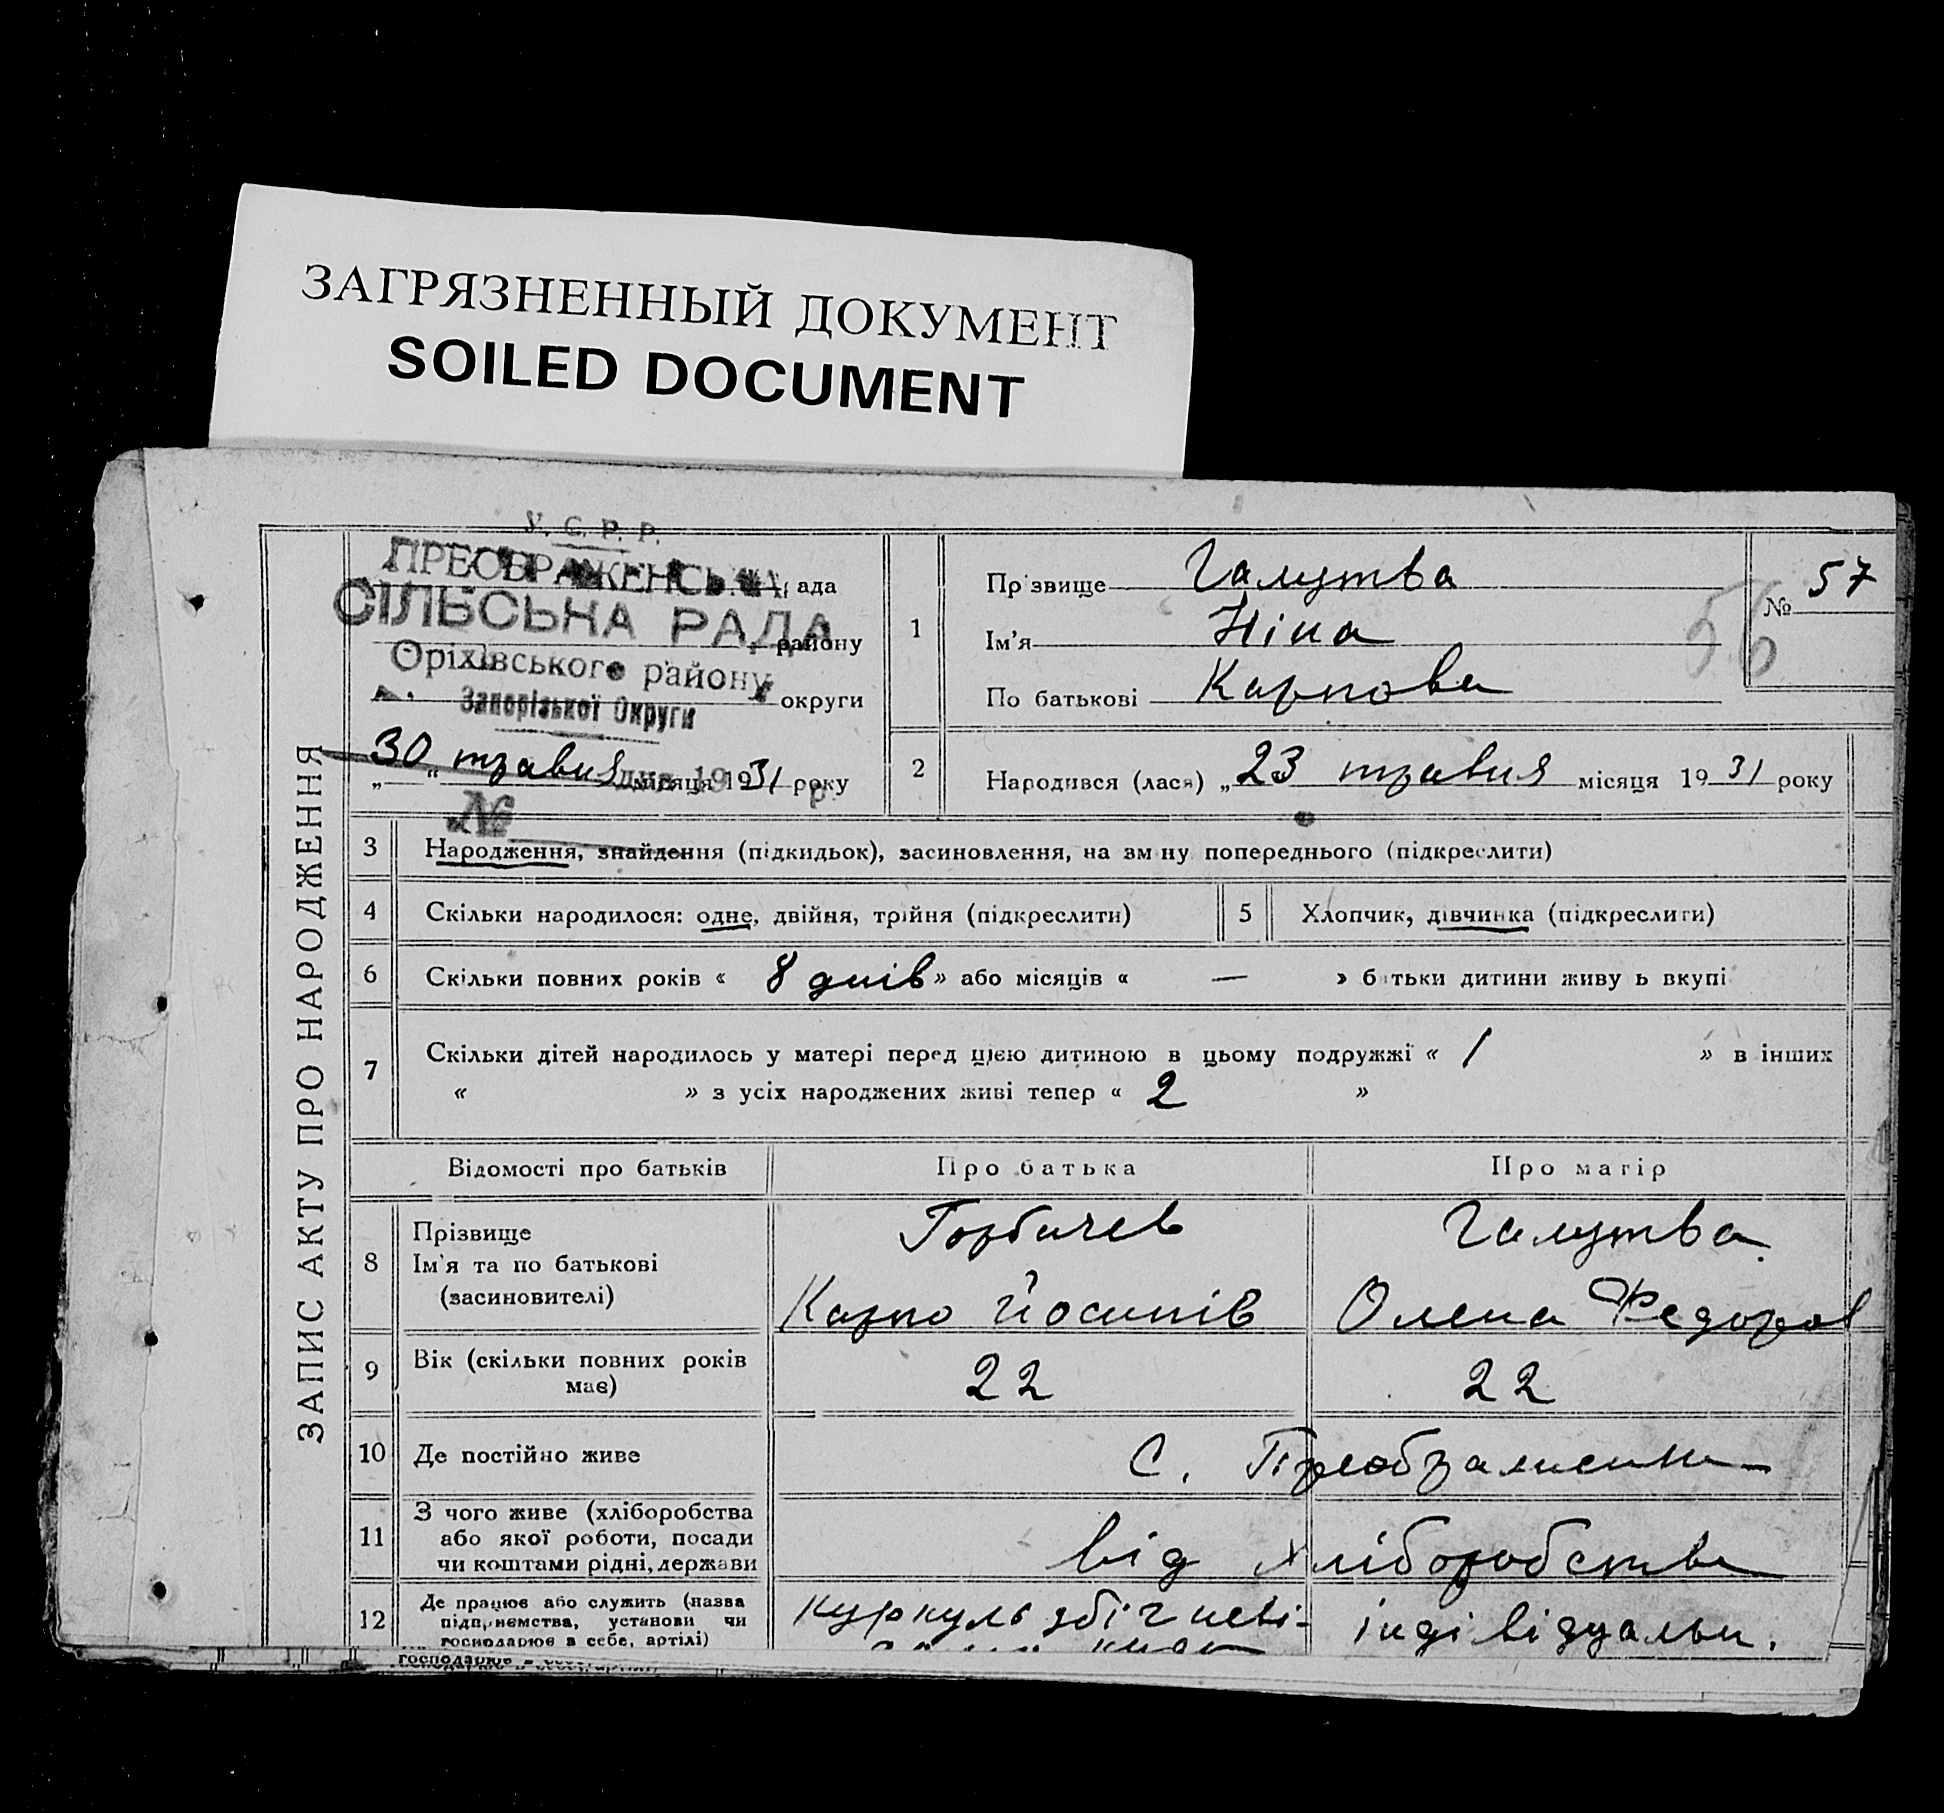 ЗАГРЯЗНЕННЫЙ ДОКУМЕНТ
SOILED DOCUMENT
У. С. Р. Р.
ПРЕОБРАЖЕНСЬКА
СІЛЬСЬКА РАДА
району
Оріхівського району
Запорізької Округи
округи
„30“ травня місяця 1931 року
№
ЗАПИС АКТУ ПРО НАРОДЖЕННЯ
1
Прізвище Галутва
Ім'я Ніна
По батькові Карпова
№ 57
56
2
Народився (лася) „23 травня місяця 1931 року
3 Народження, знайдення (підкидьок), засиновлення, на зміну попереднього (підкреслити)
4 Скільки народилося: одне, двійня, трійня (підкреслити)
5 Хлопчик, дівчинка (підкреслити)
6 Скільки повних років « 8 днів » або місяців « — » батьки дитини живуть вкупі
7 Скільки дітей народилось у матері перед цією дитиною в цьому подружжі « 1 » в інших
« » з усіх народжених живі тепер « 2 »
Відомості про батьків Про батька Про матір
8 Прізвище
Ім'я та по батькові
(засиновителі)
Горбачев Галутва
Карпо Йосипів Олена Федоров
9 Вік (скільки повних років
має)
22 22
10 Де постійно живе С. Преображенка
11 З чого живе (хліборобства
або якої роботи, посади
чи коштами рідні, держави
від хліборобства
12 Де працює або служить (назва
підприємства, установи чи
господарює в себе, артілі)
куркуль збіг неві- індівідуальн.